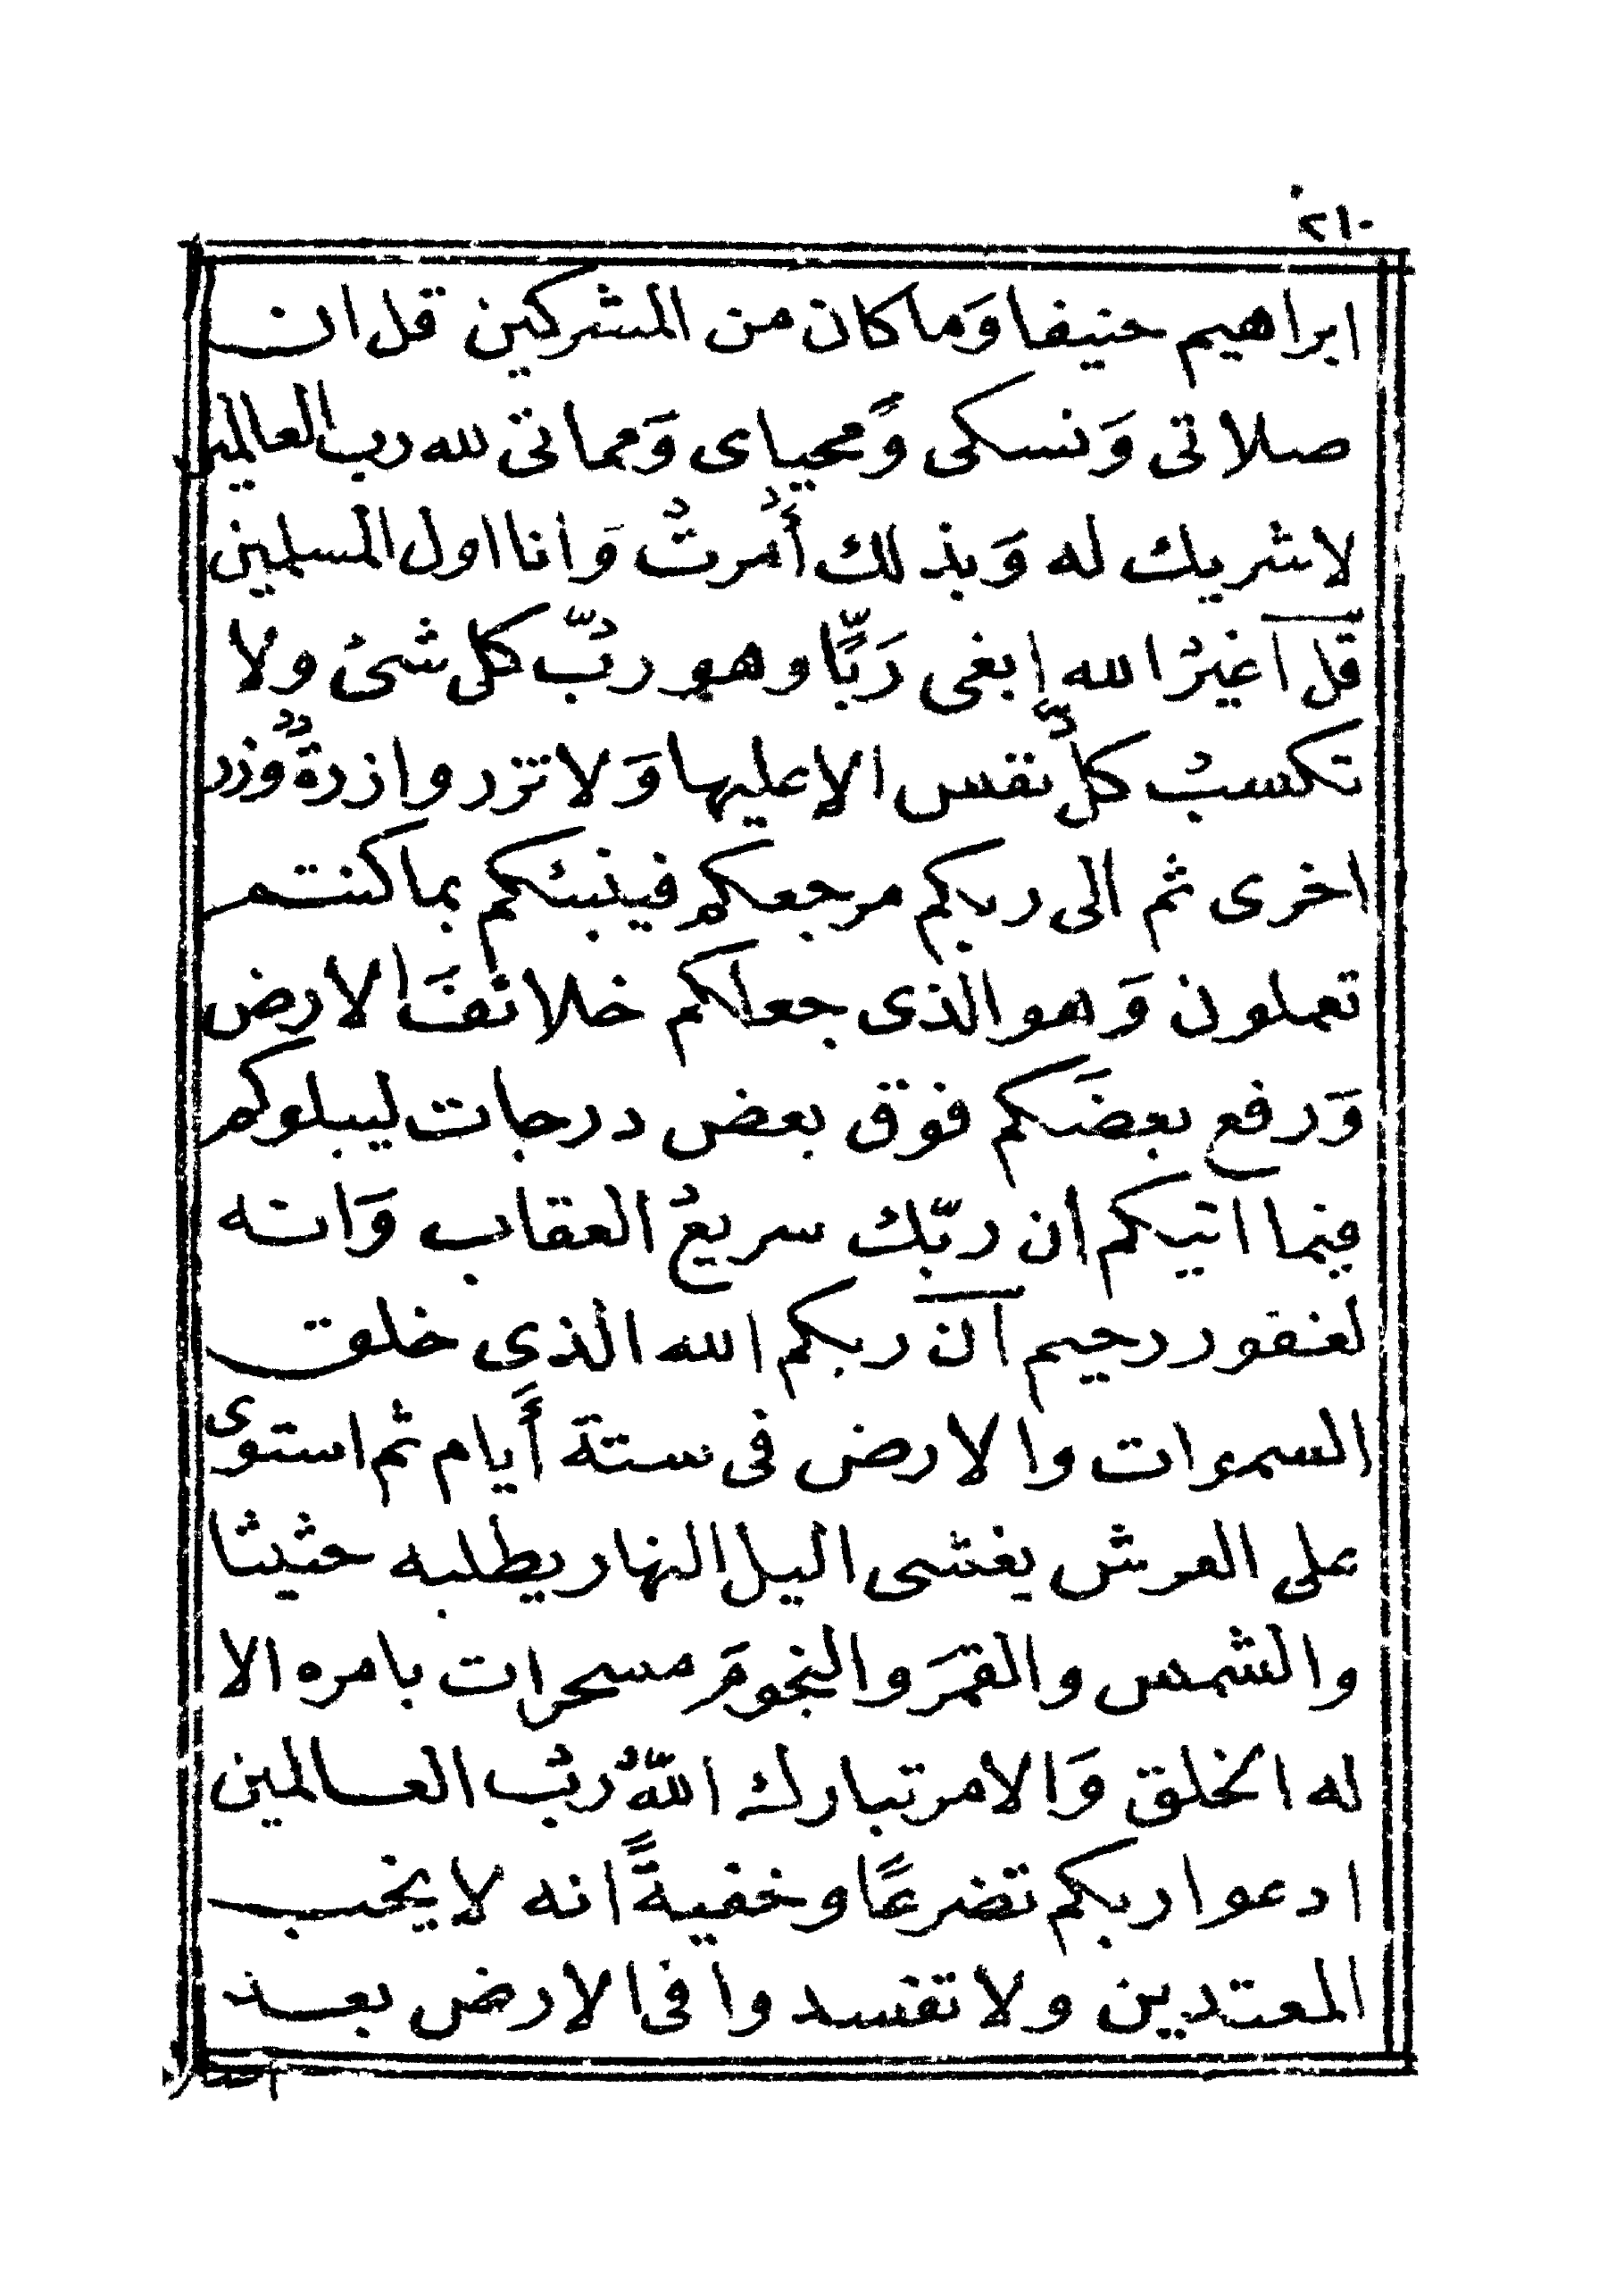 ٢١٠
ابراهيم حنيفا وَما كان من المشركين قل ان
صلاتى وَنسكى وًمحياى وَمماتى لله رب العالمين
لاشريك له وَبذلك أُمرتُ وَانا اول المسلمين
قل آغيرُ الله إبغى رَبًّا وهو ربُّ كل شئ ولا
تكسبُ كلُّ نفس الا عليها وَلا تزر وازرةٌ وٌزر
اخرى ثم الى ربكم مرجعكم فينبئكم بما كنتم
تعملون وَهو الذى جعلكم خلائفَ الارض
وَرفع بعضَكم فوق بعض درجات ليبلوكم
فيما آتيكم ان ربّك سريعُ العقاب وَانه
لغفور رحيم آن ربكم الله الذى خلق
السموات والارض فى ستة أَيام ثم استوى
على العرش يغشى اليل النهار يطلبه حثيثا
والشمس والقمَر والنجومَ مسخرات بامره الا
له الخلق وَالامر تبارك اللّهُ ربُ العالمين
ادعوا ربكم تضرعًا وخفيةً انه لا يحب
المعتدين ولا تفسدوا فى الارض بعد